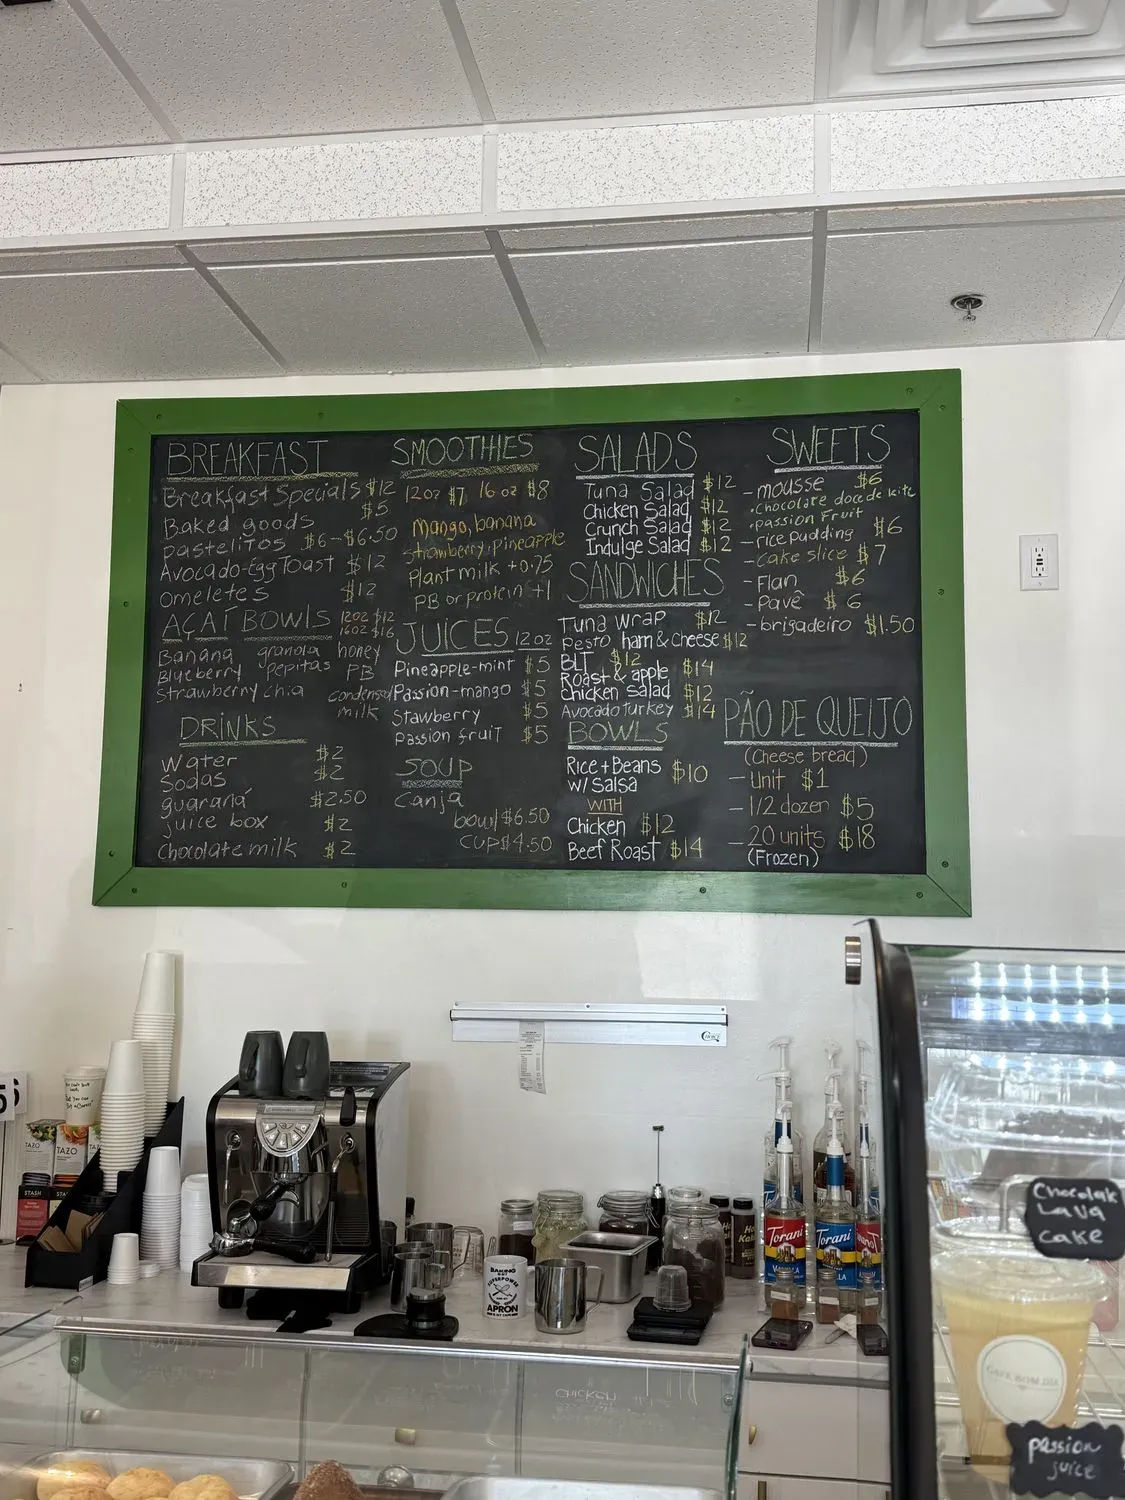 BREAKFAST
Breakfast Specials $12
$5
Baked goods
pastelitos $6-$6.50
Avocado-Egg Toast $12
Omeletes $12
AÇAÍ BOWLS 12oz $12
16oz $16
Banana granola honey
Blueberry pepitas PB
Strawberry chia condensed
milk
DRINKS
Water $2
Sodas $2
guaraná $2.50
juice box $2
Chocolate milk $2
SMOOTHIES
12oz $7 16oz $8
Mango, banana
strawberry, pineapple
Plant milk +0.75
PB or protein +1
JUICES 12oz
Pineapple-mint $5
Passion-mango $5
Stawberry $5
passion fruit $5
SOUP
Canja
bowl $6.50
cup $4.50
SALADS
Tuna Salad $12
Chicken Salad $12
Crunch Salad $12
Indulge Salad $12
SANDWICHES
Tuna wrap $12
Pesto ham & cheese $12
BLT $12
Roast & apple $14
Chicken Salad $12
Avocado turkey $14
BOWLS
Rice + Beans $10
w/ Salsa
WITH
Chicken $12
Beef Roast $14
SWEETS
- mousse $6
.chocolate doce de leite
.passion fruit
- rice pudding $6
- cake slice $7
- Flan $6
- Pavê $6
- brigadeiro $1.50
PÃO DE QUEIJO
(Cheese bread)
- Unit $1
- 1/2 dozen $5
- 20 units $18
(Frozen)
TAZO
TAZO
STASH
STA
BAKING
SUPERPOWER
APRON
Torani
VANILLA
Torani
Torani
Chocolate
Lava
cake
CAFE BOM DIA
passion
juice